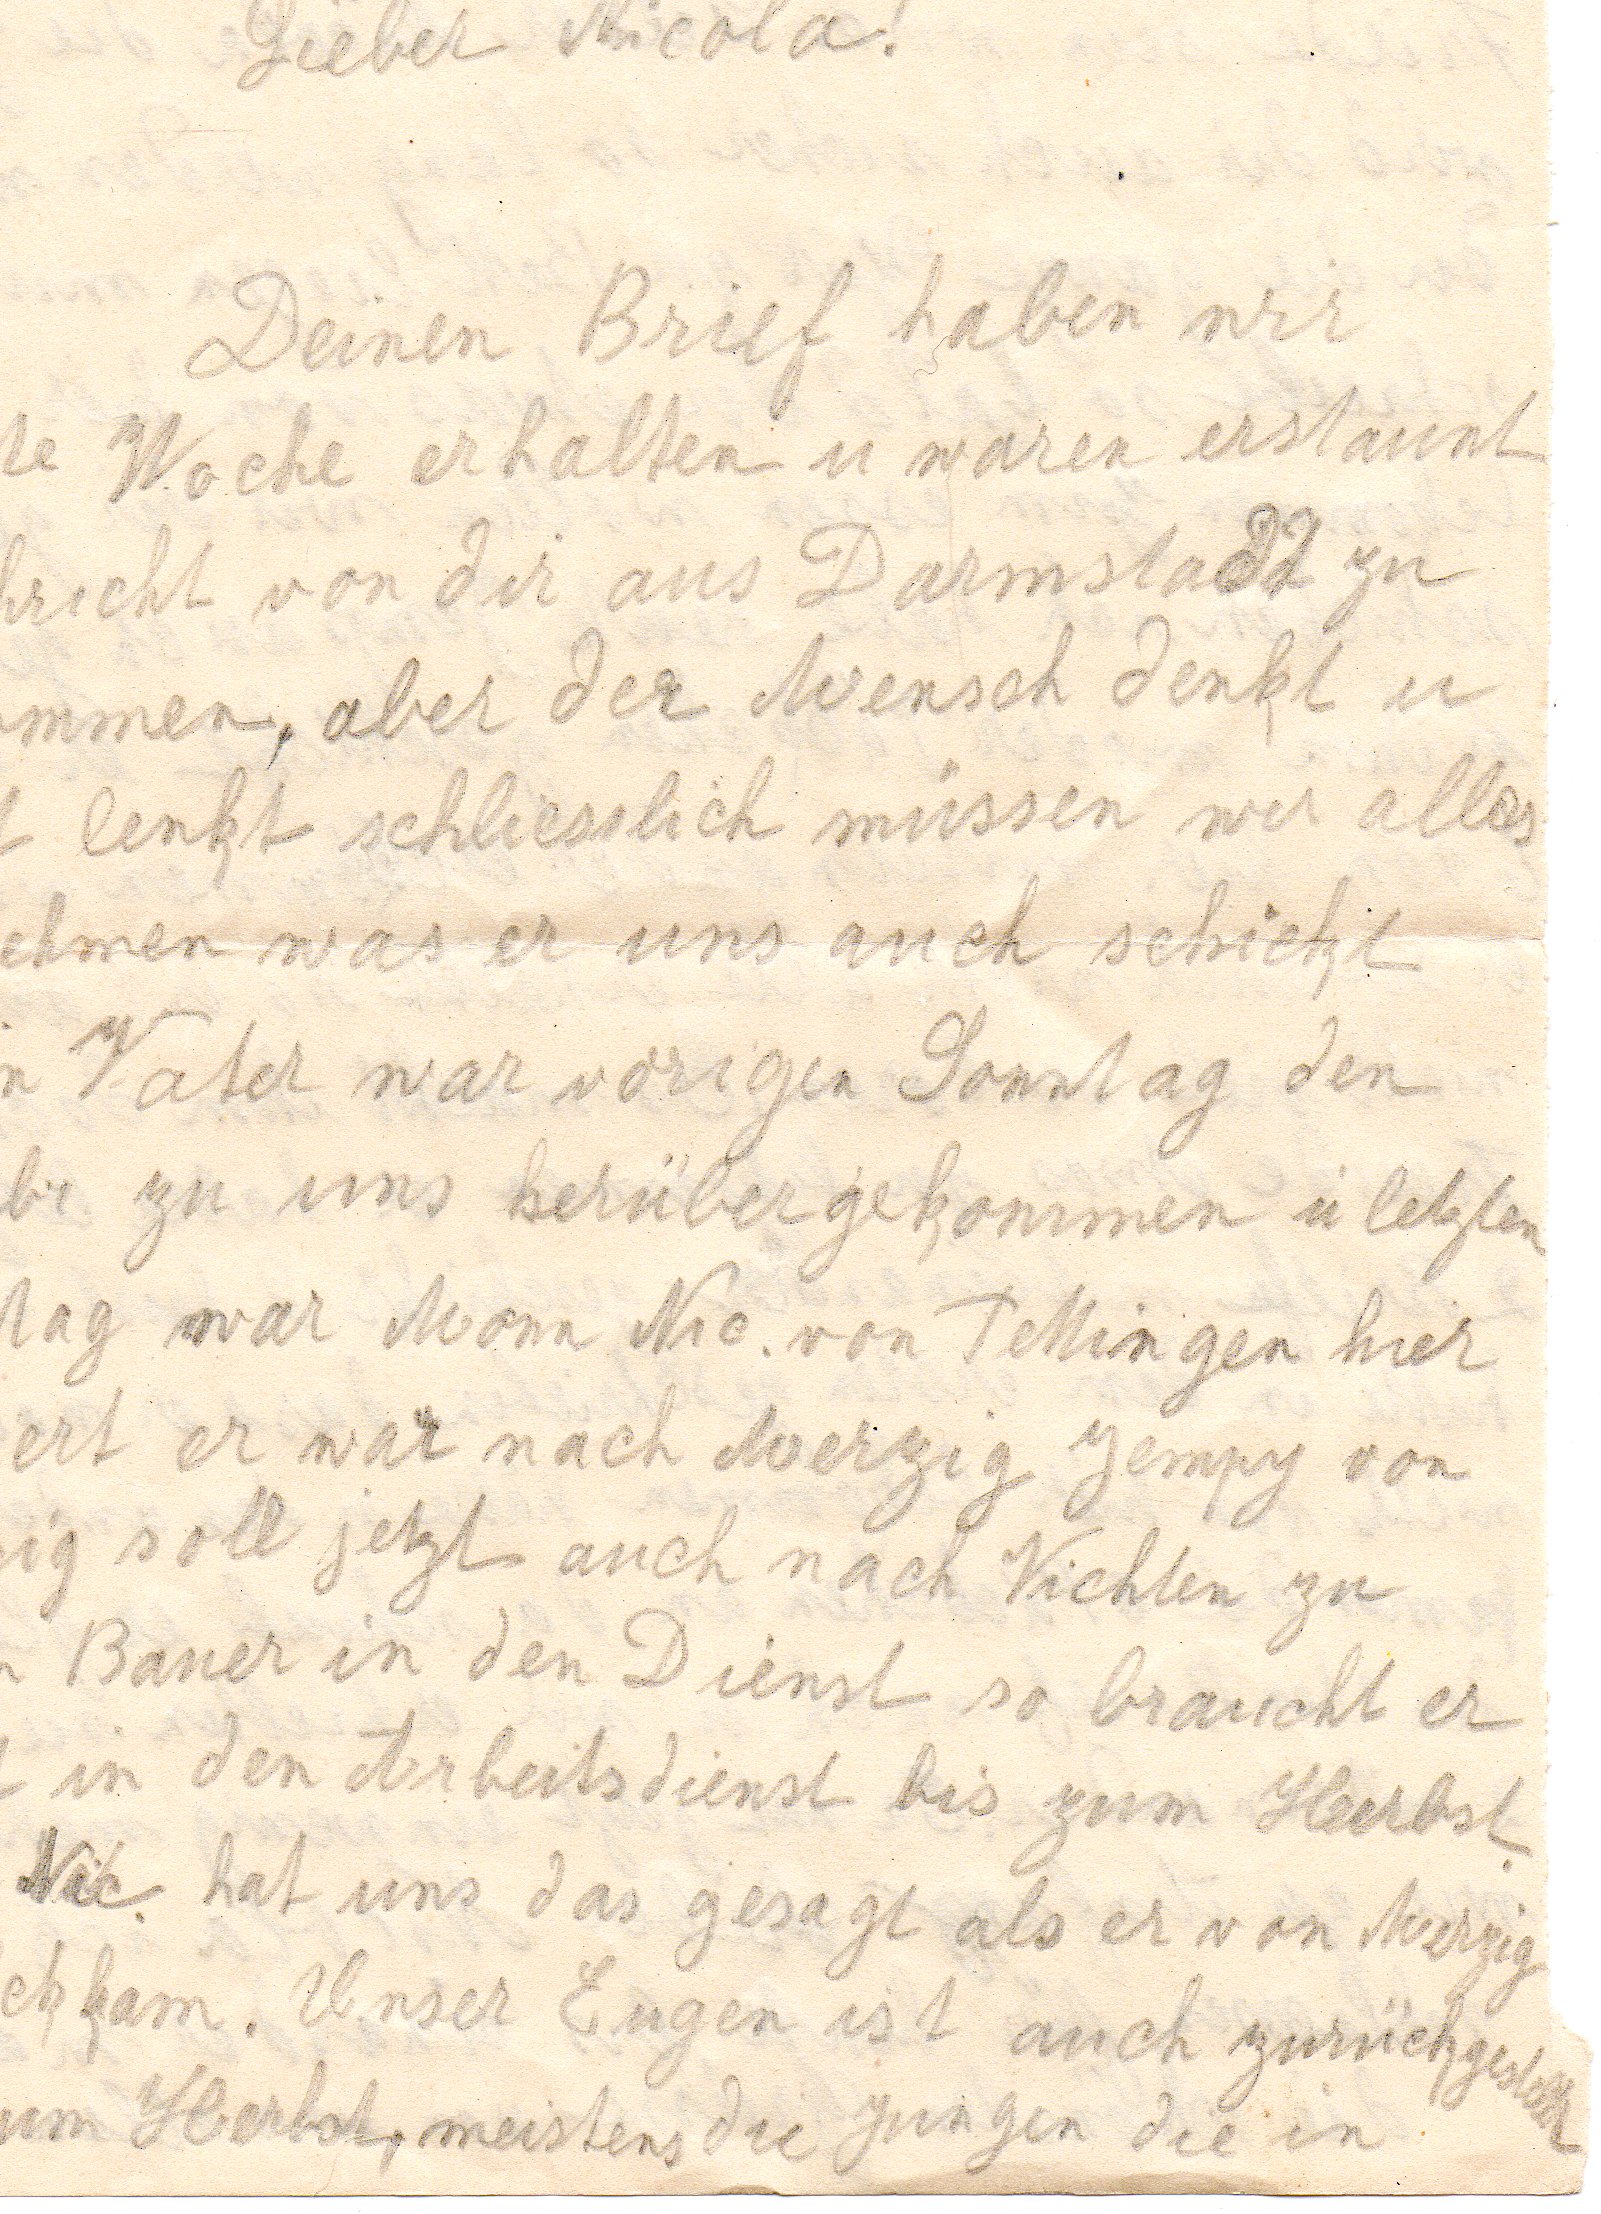 Lieber Nicola!
Deinen Brief haben wir
te Woche erhalten u waren erstaunt
hricht von dir aus Darmstadt zu
ommen, aber der Mensch denkt u
t lenkt schliesslich müssen wir alles
ehmen was er uns auch schickt
n Vater war vorigen Sonntag den
zu uns herübergekommen u letzten
tag war Monn Nic. von Tettingen hier
ert er war nach Merzig Jempy von
ig soll jetzt auch nach Vichten zu
n Bauer in den Dienst so braucht er
t in den Arbeitsdienst bis zum Herbst.
Nic. hat uns das gesagt als er von Merzig
ck kam. Unser Eugen ist auch zurückgestellt
um Herbst, meistens die Jungen die in